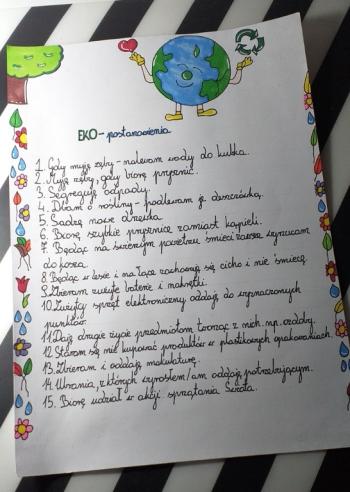 EKO - postanowienia
1. Gdy myję zęby - nalewam wody do kubka.
2. Myję zęby, gdy biorę prysznic.
3. Segreguję odpady.
4. Dbam o rośliny - podlewam je deszczówką.
5. Sadzę nowe drzewka.
6. Biorę szybkie prysznice zamiast kąpieli.
7. Będąc na świeżym powietrzu śmieci zawsze wyrzucam
do kosza.
8. Będąc w lesie i na łące zachowuję się cicho i nie śmiecę.
9. Zbieram zużyte baterie i nakrętki.
10. Zużyty sprzęt elektroniczny oddaję do wyznaczonych
punktów.
11. Daję drugie życie przedmiotom tworząc z nich np. ozdoby.
12. Staram się nie kupować produktów w plastikowych opakowaniach.
13. Zbieram i oddaję makulaturę.
14. Ubrania, z których wyrosłem/am oddaję potrzebującym.
15. Biorę udział w akcji sprzątania Świata.